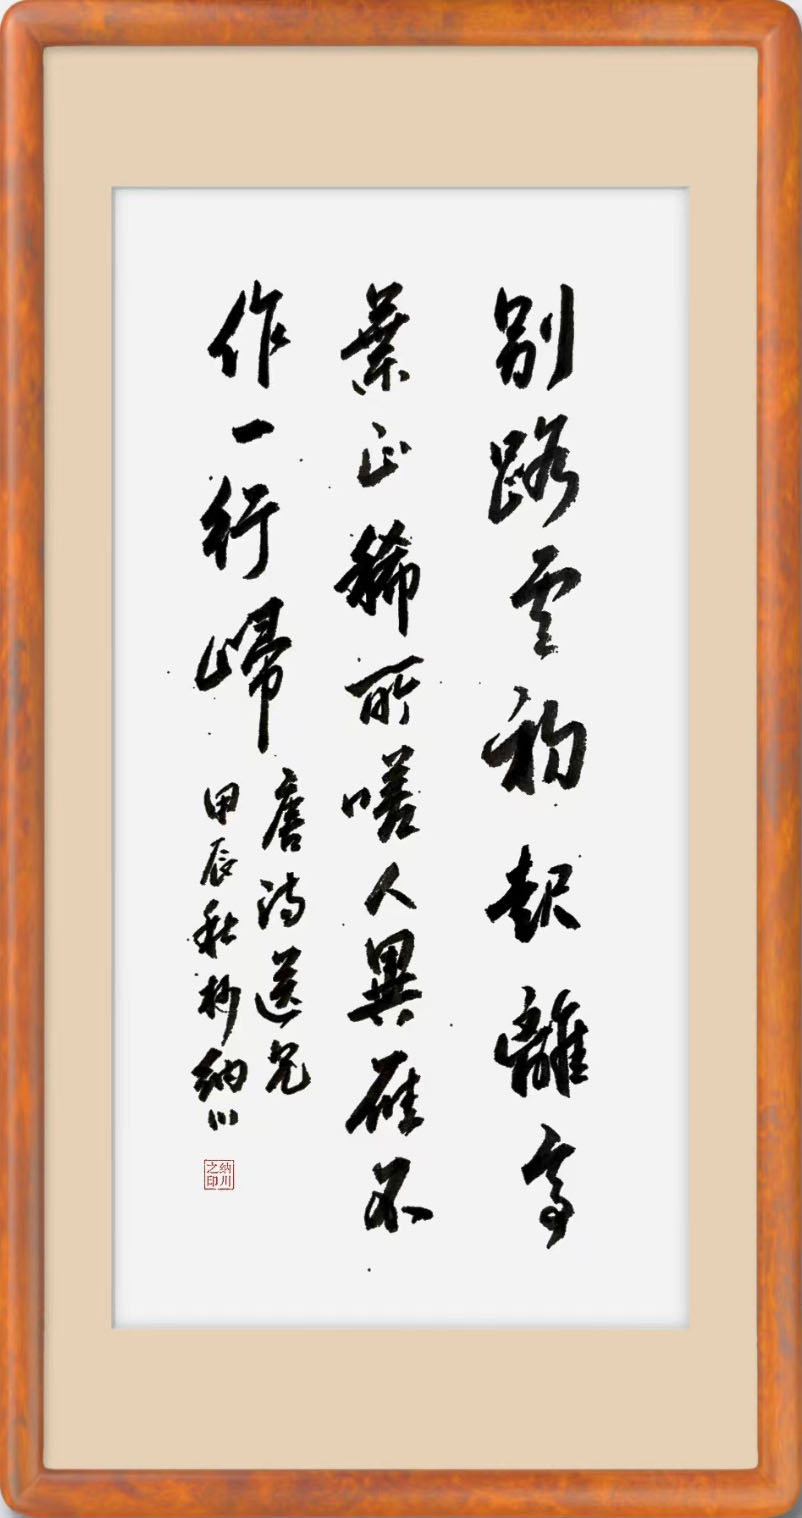 別路雲初起離亭
葉正稀所嗟人異雁不
作一行歸
唐詩送兄
甲辰秋杪納川
纳川之印